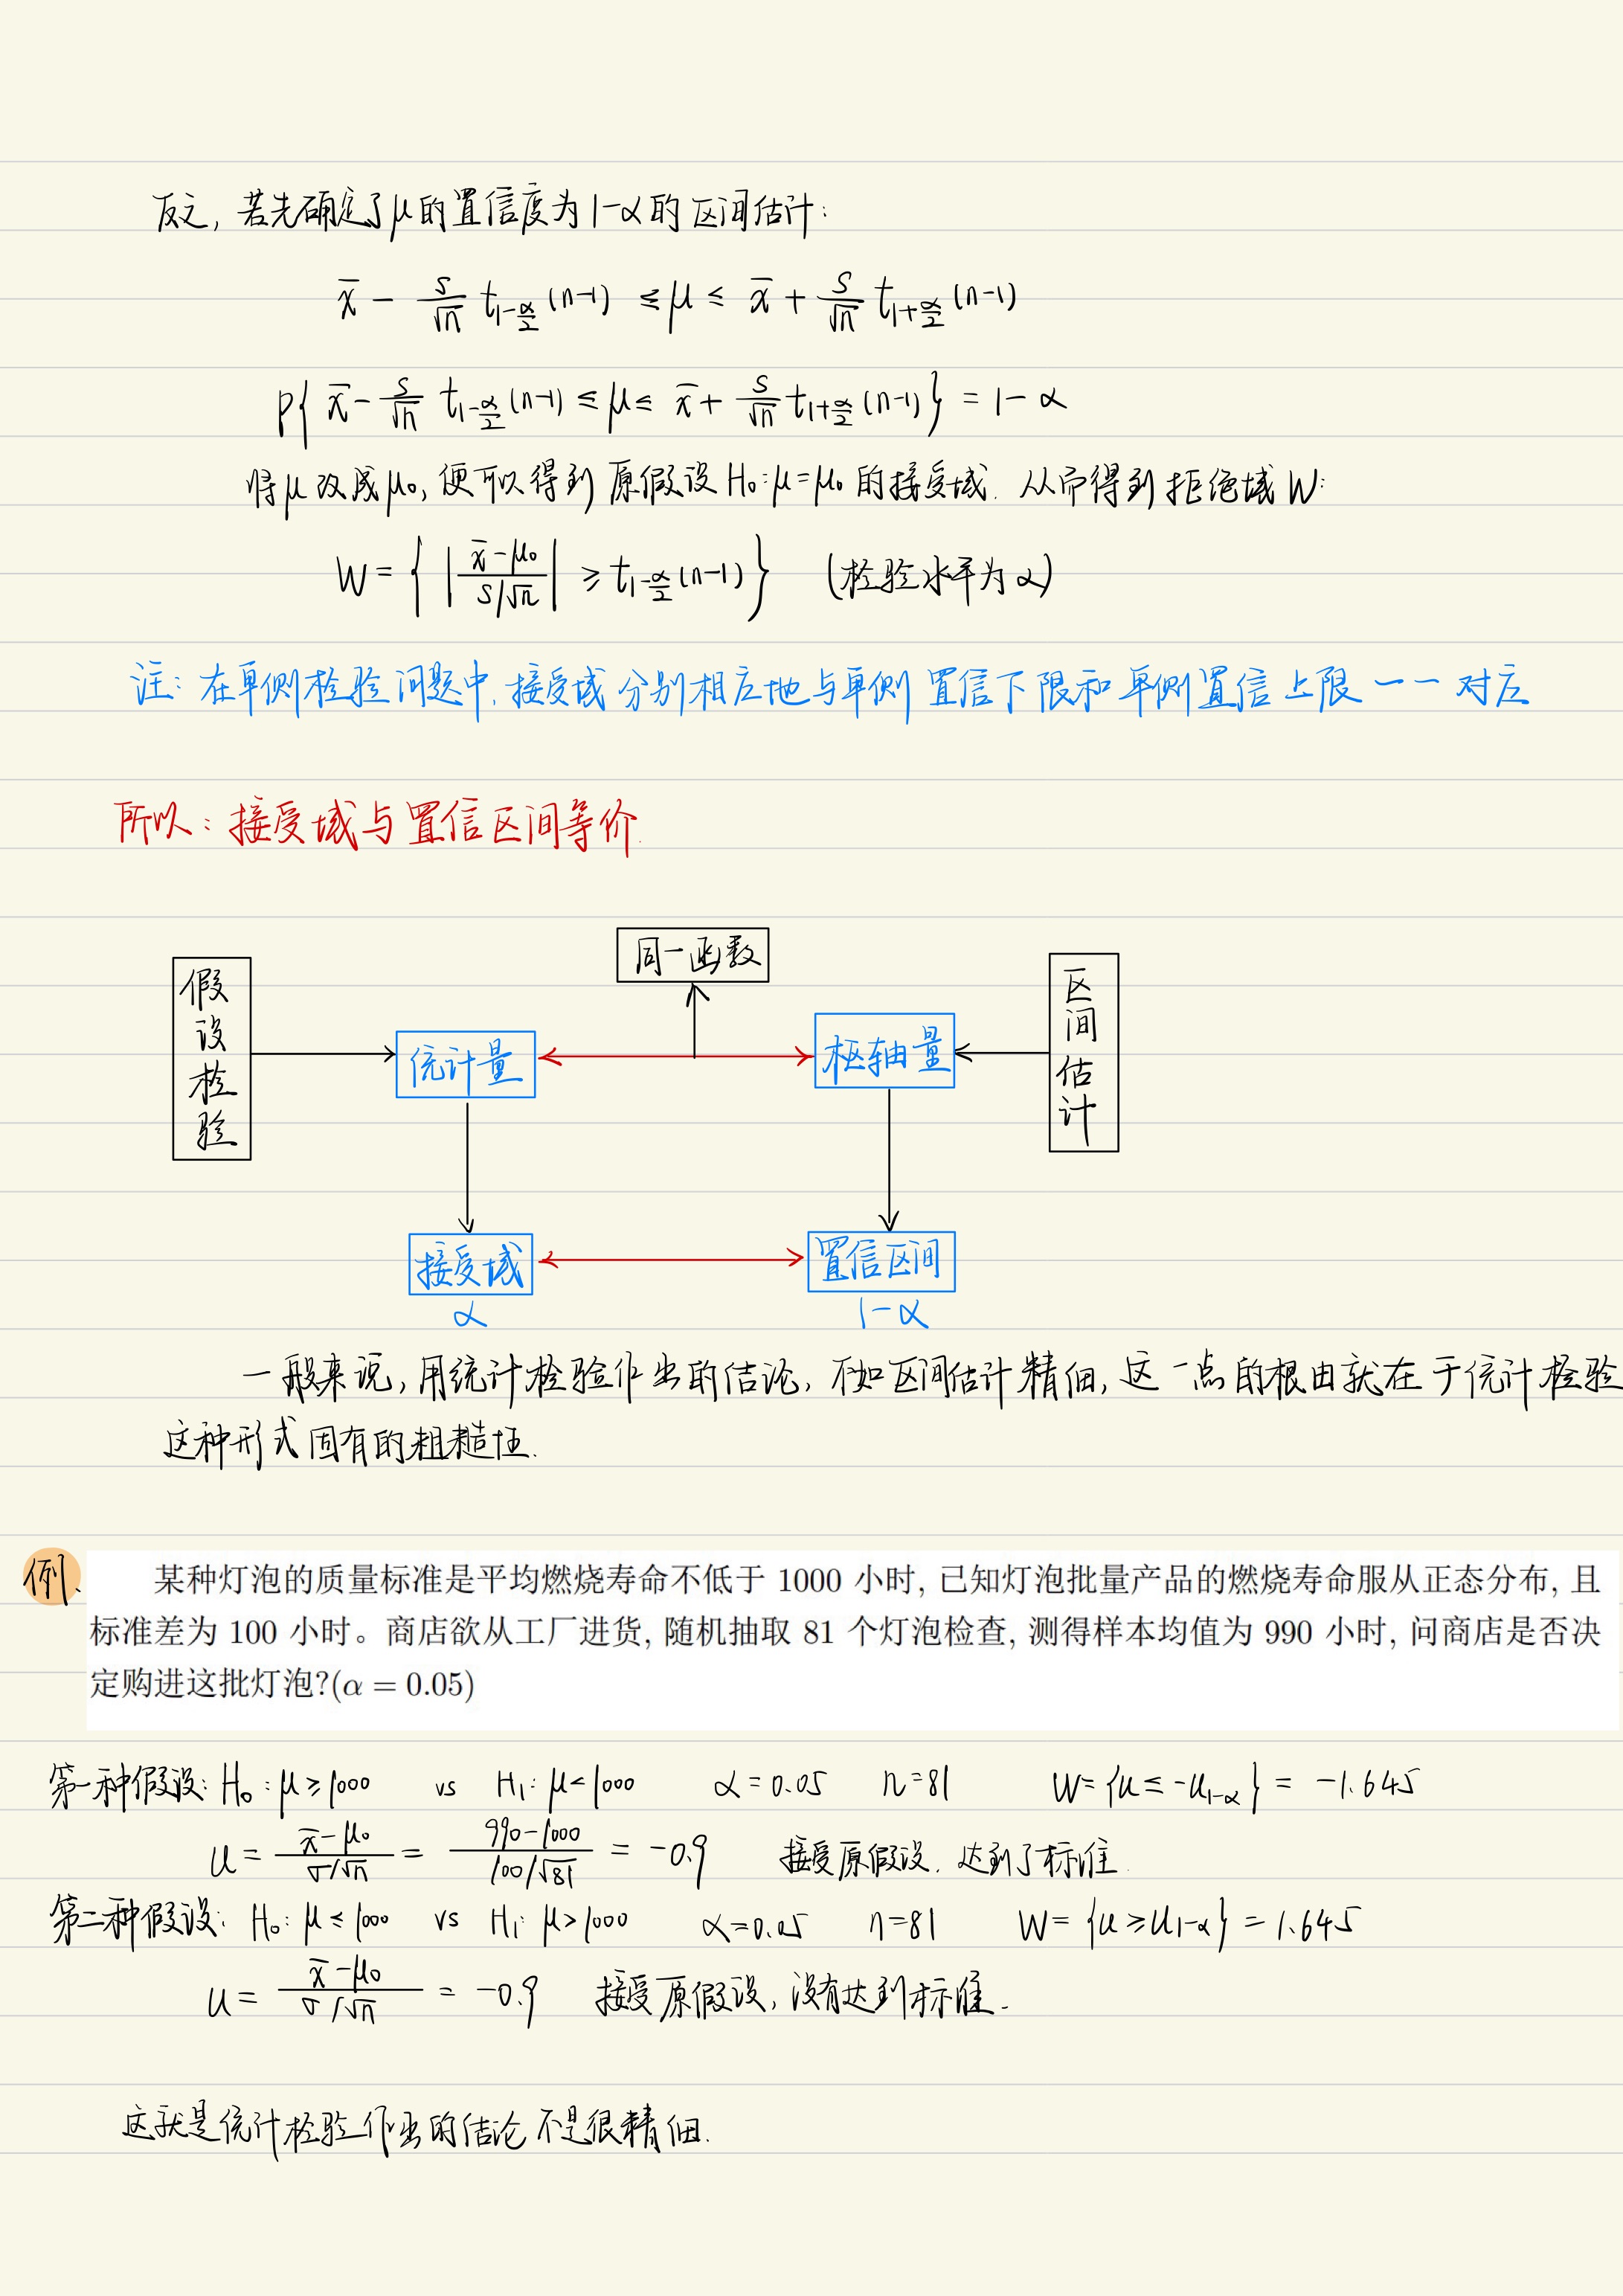 反之, 若先确定了μ的置信度为1-α的区间估计:
x̄ - s/√n t_{1-α/2}(n-1) ≤ μ ≤ x̄ + s/√n t_{1+α/2}(n-1)
P{ x̄ - s/√n t_{1-α/2}(n-1) ≤ μ ≤ x̄ + s/√n t_{1+α/2}(n-1) } = 1-α
将μ改成μ₀, 便可以得到原假设H₀:μ=μ₀的接受域. 从而得到拒绝域W:
W = { |(x̄-μ₀)/(s/√n)| ≥ t_{1-α/2}(n-1) } (检验水平为α)
注: 在单侧检验问题中, 接受域分别相应地与单侧置信下限和单侧置信上限一一对应
所以: 接受域与置信区间等价.
同一函数
假设检验
统计量
枢轴量
区间估计
接受域
置信区间
α
1-α
一般来说, 用统计检验作出的结论, 不如区间估计精细, 这一点的根由就在于统计检验
这种形式固有的粗糙性.
例、
某种灯泡的质量标准是平均燃烧寿命不低于 1000 小时, 已知灯泡批量产品的燃烧寿命服从正态分布, 且
标准差为 100 小时。商店欲从工厂进货, 随机抽取 81 个灯泡检查, 测得样本均值为 990 小时, 问商店是否决
定购进这批灯泡?(α = 0.05)
第一种假设: H₀: μ≥1000 vs H₁: μ<1000 α=0.05 n=81 W={u≤-u_{1-α}} = -1.645
u = (x̄-μ₀)/(σ/√n) = (990-1000)/(100/√81) = -0.9 接受原假设, 达到了标准.
第二种假设: H₀: μ≤1000 vs H₁: μ>1000 α=0.05 n=81 W={u≥u_{1-α}} = 1.645
u = (x̄-μ₀)/(σ/√n) = -0.9 接受原假设, 没有达到标准.
这就是统计检验作出的结论不是很精细.